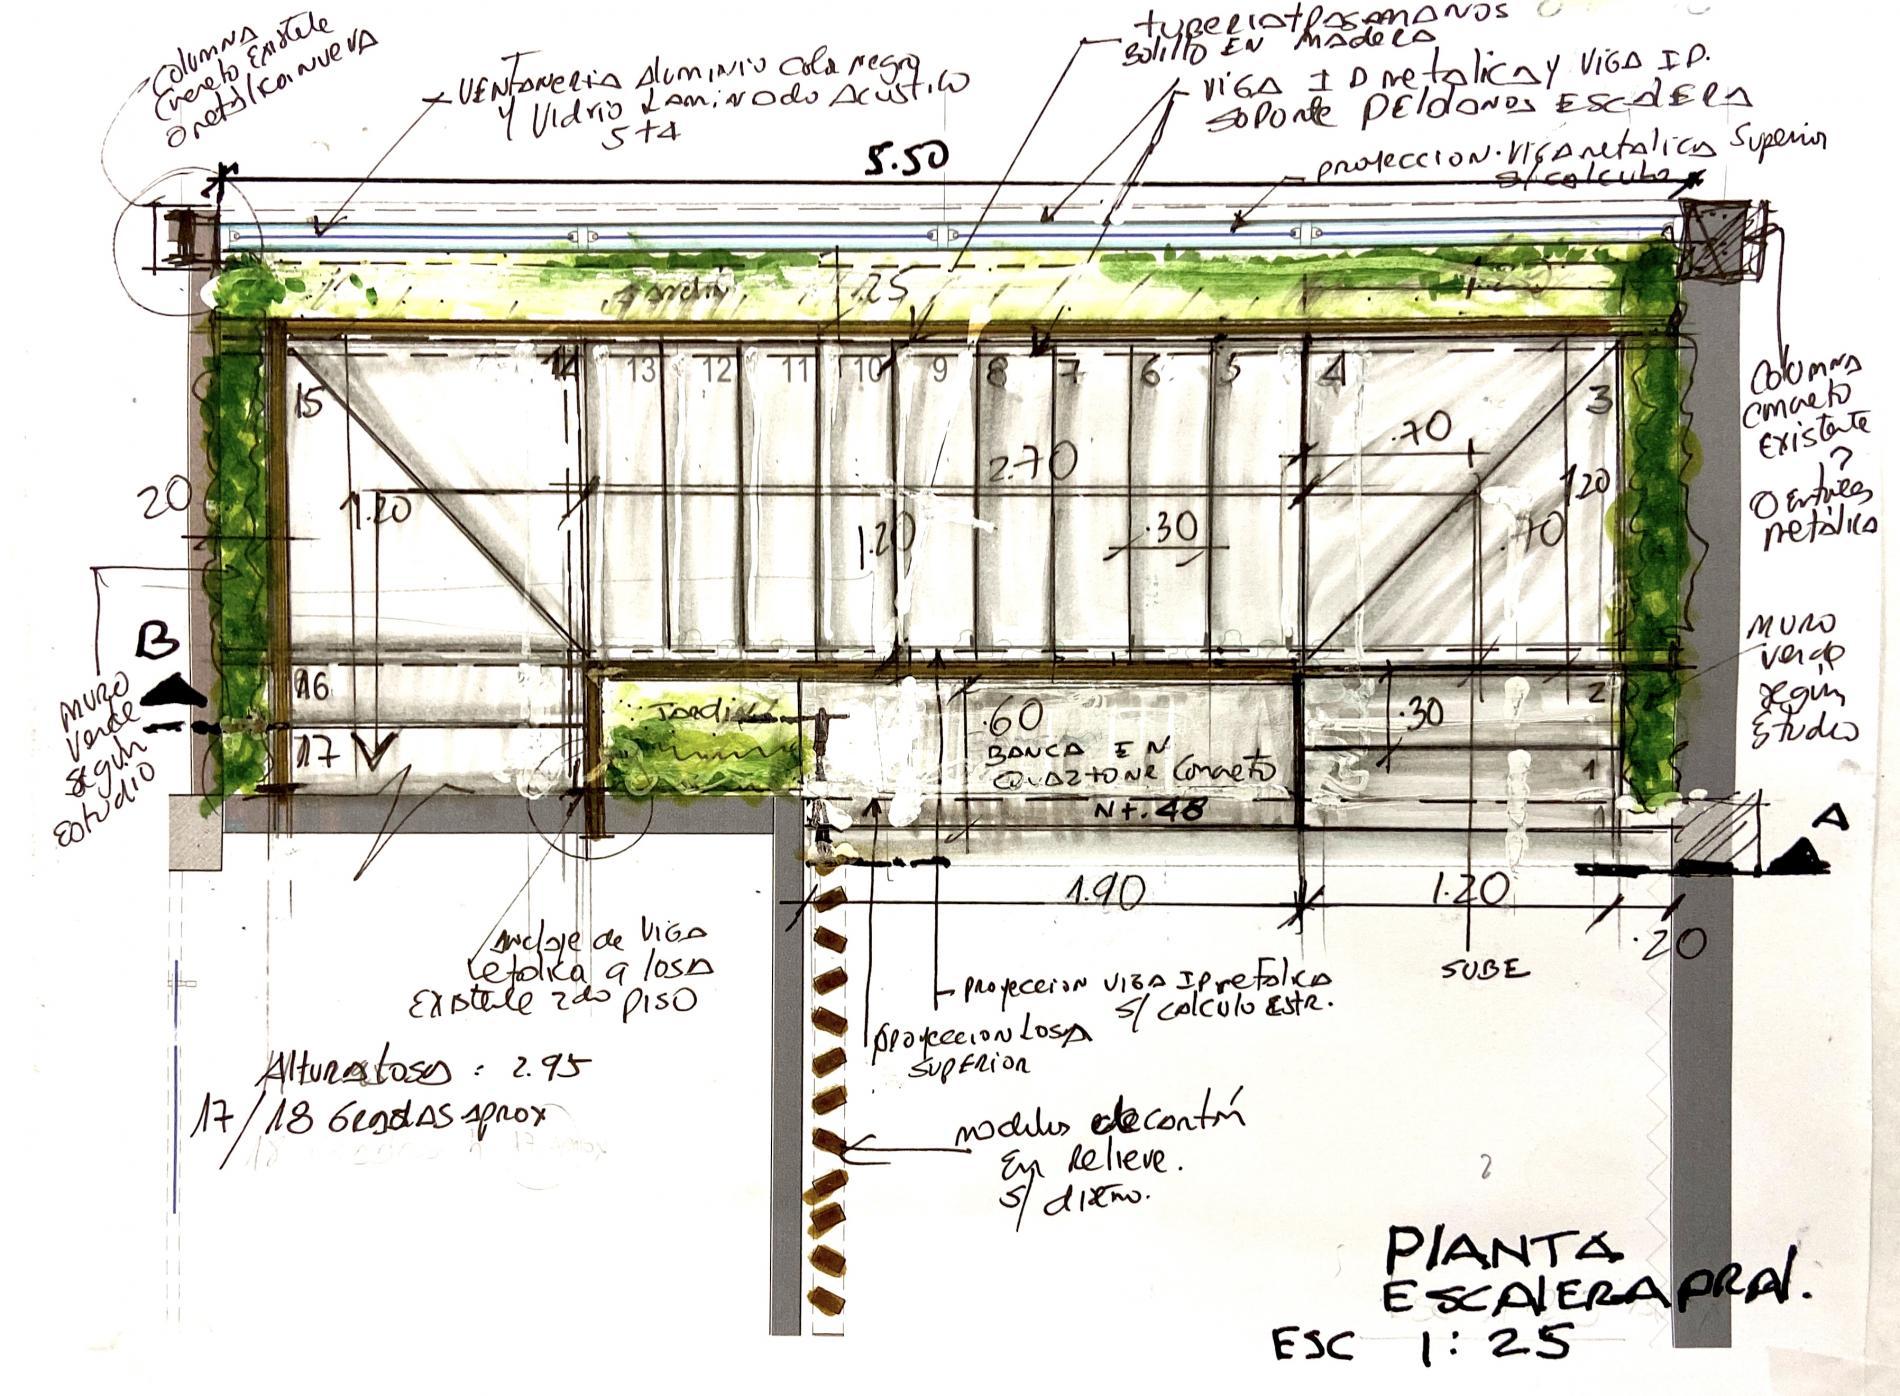 COLUMNA
Concreto Existete
o metalica nueva
VENTANERIA Aluminio Color negro
Y Vidrio Laminado Acustico
5+4
tuberia+Pasamanos
Bolillo EN MADERA
VIGA I P metalica y VIGA I P.
soporte PELDAÑOS ESCALERA
proyeccion. Viga metalica Superior
s/calculo
5.50
Jardin
.25
1.20
15
14
13
12
11
10
9
8
7
6
5
4
3
.70
2.70
1.20
1.20
.30
120
.70
20
COLUMNA
Concreto
Existente
?
metálica
B
MURO
verde
según
Estudio
16
17
Jardin
.60
BANCA EN
Concreto
N+.48
.30
2
1
MURO
verde
según
Estudio
A
1.90
1.20
.20
SUBE
Anclaje de VIGA
metalica a losa
Existente 2do piso
proyeccion VIGA IP metalica
s/ calculo Estr.
proyeccion Losa
superior
Altura losa : 2.95
17/18 Gradas aprox
En Relieve.
s/ diseño.
PLANTA
ESCALERA PRAL.
ESC 1:25